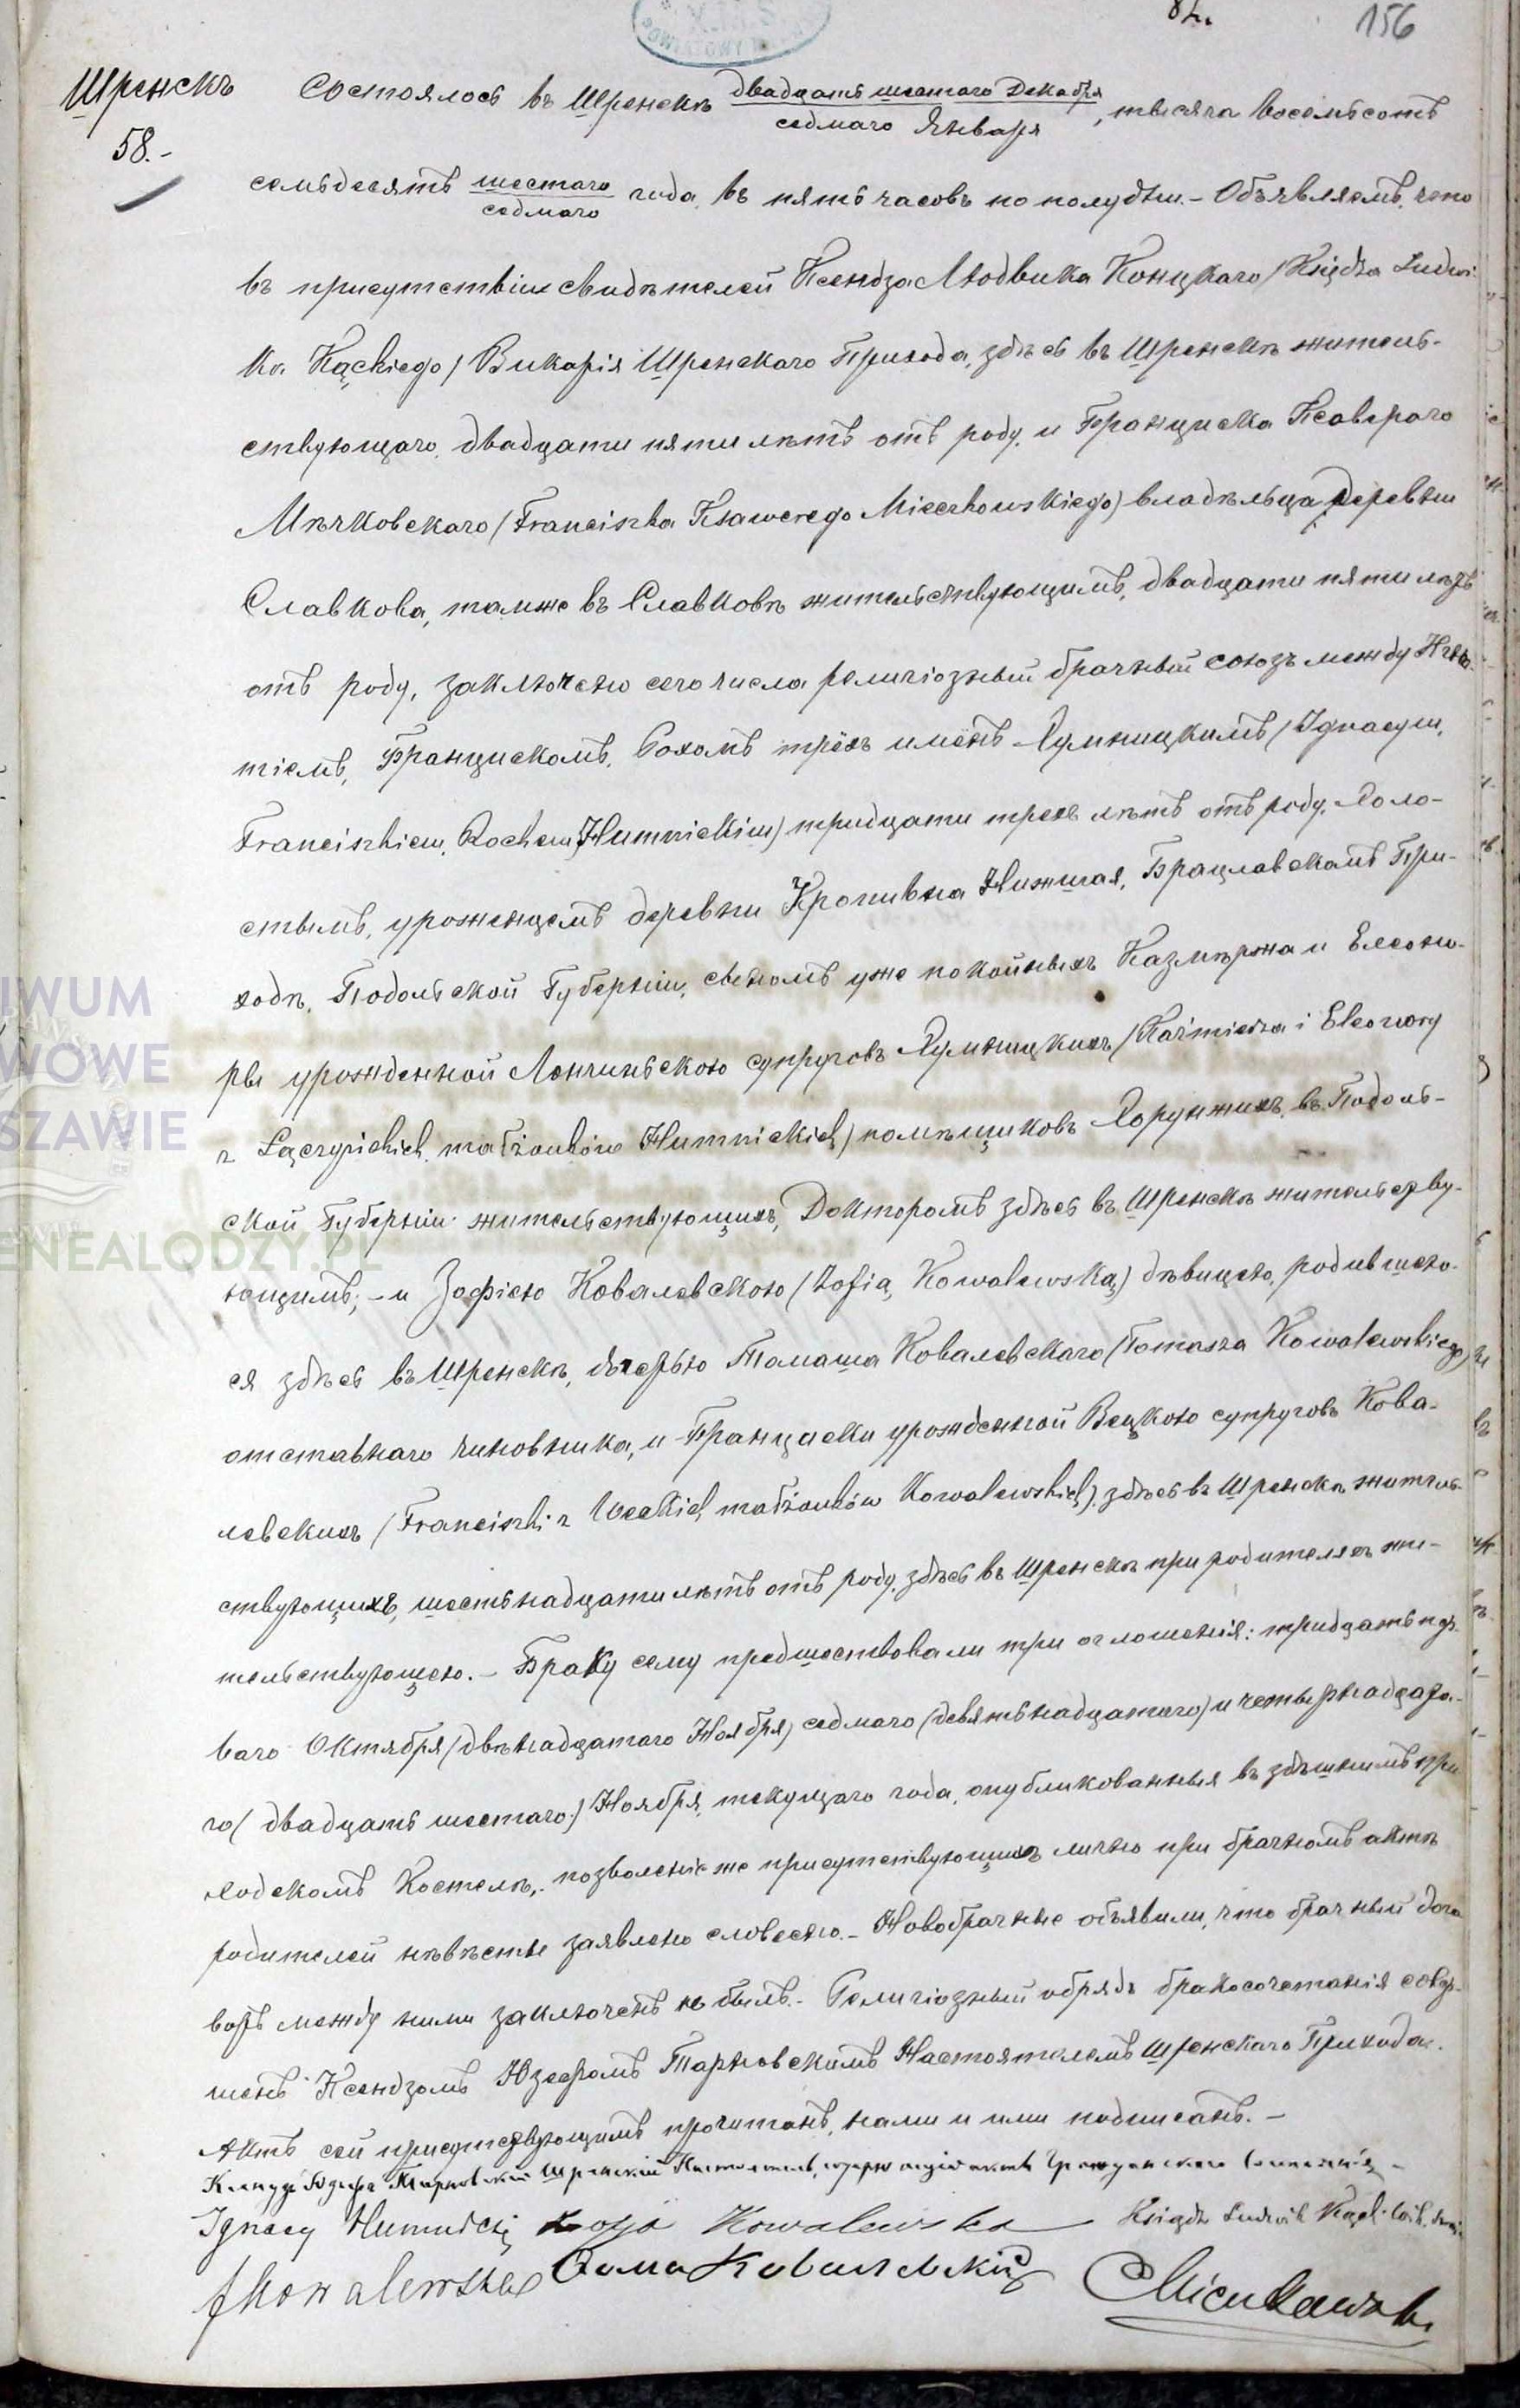 82.
156
Шренскъ
58.-
Состоялось въ Шренскѣ двадцать шестаго Декабря / седмаго Января, тысяча восемьсотъ
семьдесятъ шестаго / седмаго года, въ пять часовъ по полудни.- Объявляемъ, что
въ присутствіи свидѣтелей Ксендза Людвика Концкаго /Księdza Ludwi-
ka Kąckiego/ Викарія Шренскаго Прихода, здѣсь въ Шренскѣ житель-
ствующаго, двадцати пяти лѣтъ отъ роду, и Францишка Ксавераго
Мѣчковскаго (Franciszka Ksawerego Mieczkowskiego) владѣльца деревни
Славкова, тамже въ Славковѣ жительствующимъ, двадцати пяти лѣтъ
отъ роду, заключено сего числа религіозный брачный союзъ между Игна-
тіемъ, Францискомъ, Рохомъ трёхъ имёнъ Хумницкимъ /Ignacym,
Franciszkiem, Rochem Humnickim) тридцати трехъ лѣтъ отъ роду, холо-
стымъ, уроженцемъ деревни Кропивна Нижшая, Брацлавскомъ При-
ходѣ, Подольской Губерніи, сыномъ уже покойныхъ Казмѣржа и Елеоно-
ры урожденной Лончиньскою супруговъ Хумницкихъ /Kaźmierza i Eleonory
z Łączyńskich małżonków Humnickich) помѣщиковъ Хорунжихъ, въ Подоль-
ской Губерніи жительствующихъ, Докторомъ здѣсь въ Шренскѣ жительству-
ющимъ; - и Зофіею Ковалевскою (Zofią Kowalewską) дѣвицею, родившею-
ся здѣсь въ Шренскѣ, дочерью Томаша Ковалевскаго (Tomasza Kowalewskiego)
отставнаго чиновника, и Францишки урожденной Вецкою супруговъ Кова-
левскихъ (Franciszki z Weckich małżonków Kowalewskich), здѣсь въ Шренскѣ житель-
ствующихъ, шестьнадцати лѣтъ отъ роду, здѣсь въ Шренскѣ при родителяхъ жи-
тельствующею.- Браку сему предшествовали три оглошенія: тридцать пер-
ваго Октября (двѣнадцатаго Ноября) седмаго (девятьнадцатаго) и четырнадцата-
го (двадцать шестаго) Ноября, текущаго года, опубликованныя въ здѣшнимъ при-
ходскомъ Костелѣ, позволеніе же присутствующихъ лично при брачномъ актѣ
родителей невѣсты заявлено словесно.- Новобрачные объявили, что брачный дого-
воръ между ними заключенъ не былъ.- Религіозный обрядъ бракосочетанія совер-
шенъ Ксендзомъ Юзефомъ Тарновскимъ Настоятелемъ Шренскаго Прихода.
Актъ сей присутствующимъ прочитанъ, нами и ими подписанъ.-
Ксендзъ Юзефъ Тарновскій Шренскій Настоятель, содержащій акты Гражданскаго Состоянія -
Ignacy Humnicki Zofja Kowalewska Ksiądz Ludwik Kącki Wik.
FKowalewska Ѳома Ковалевскій Mieczkowski